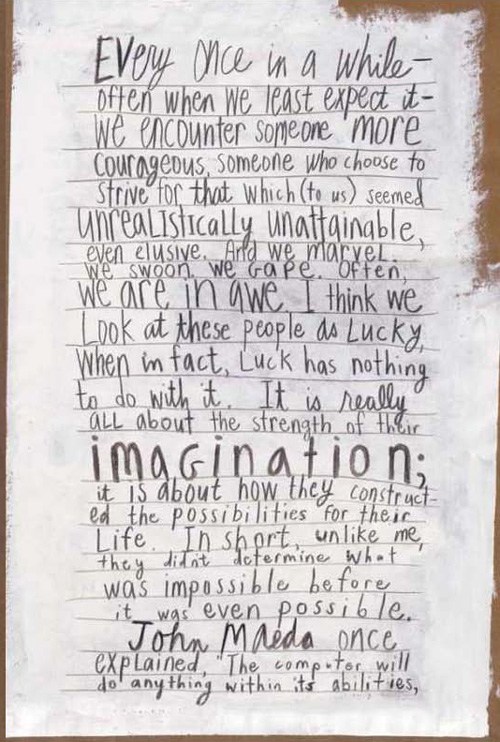 Every once in a while-
often when we least expect it-
we encounter someone more
courageous, someone who choose to
strive for that which (to us) seemed
unrealistically unattainable,
even elusive. And we marvel.
We swoon. We gape. Often,
we are in awe. I think we
look at these people as lucky,
when in fact, luck has nothing
to do with it. It is really
all about the strength of their
imagination;
it is about how they construct-
ed the possibilities for their
life. In short, unlike me,
they didnt determine what
was impossible before
it was even possible.
John Maeda once
explained, "The computer will
do anything within its abilities,